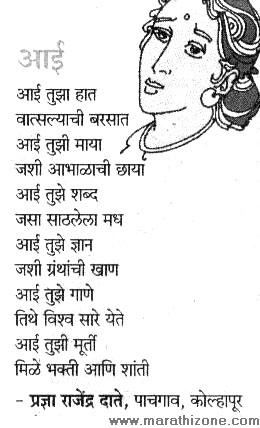 आई
आई तुझा हात
वात्सल्याची बरसात
आई तुझी माया
जशी आभाळाची छाया
आई तुझे शब्द
जसा साठलेला मध
आई तुझे ज्ञान
जशी ग्रंथांची खाण
आई तुझे गाणे
तिथे विश्व सारे येते
आई तुझी मूर्ती
मिळे भक्ती आणि शांती
- प्रज्ञा राजेंद्र दाते, पाचगाव, कोल्हापूर
www.marathizone.com